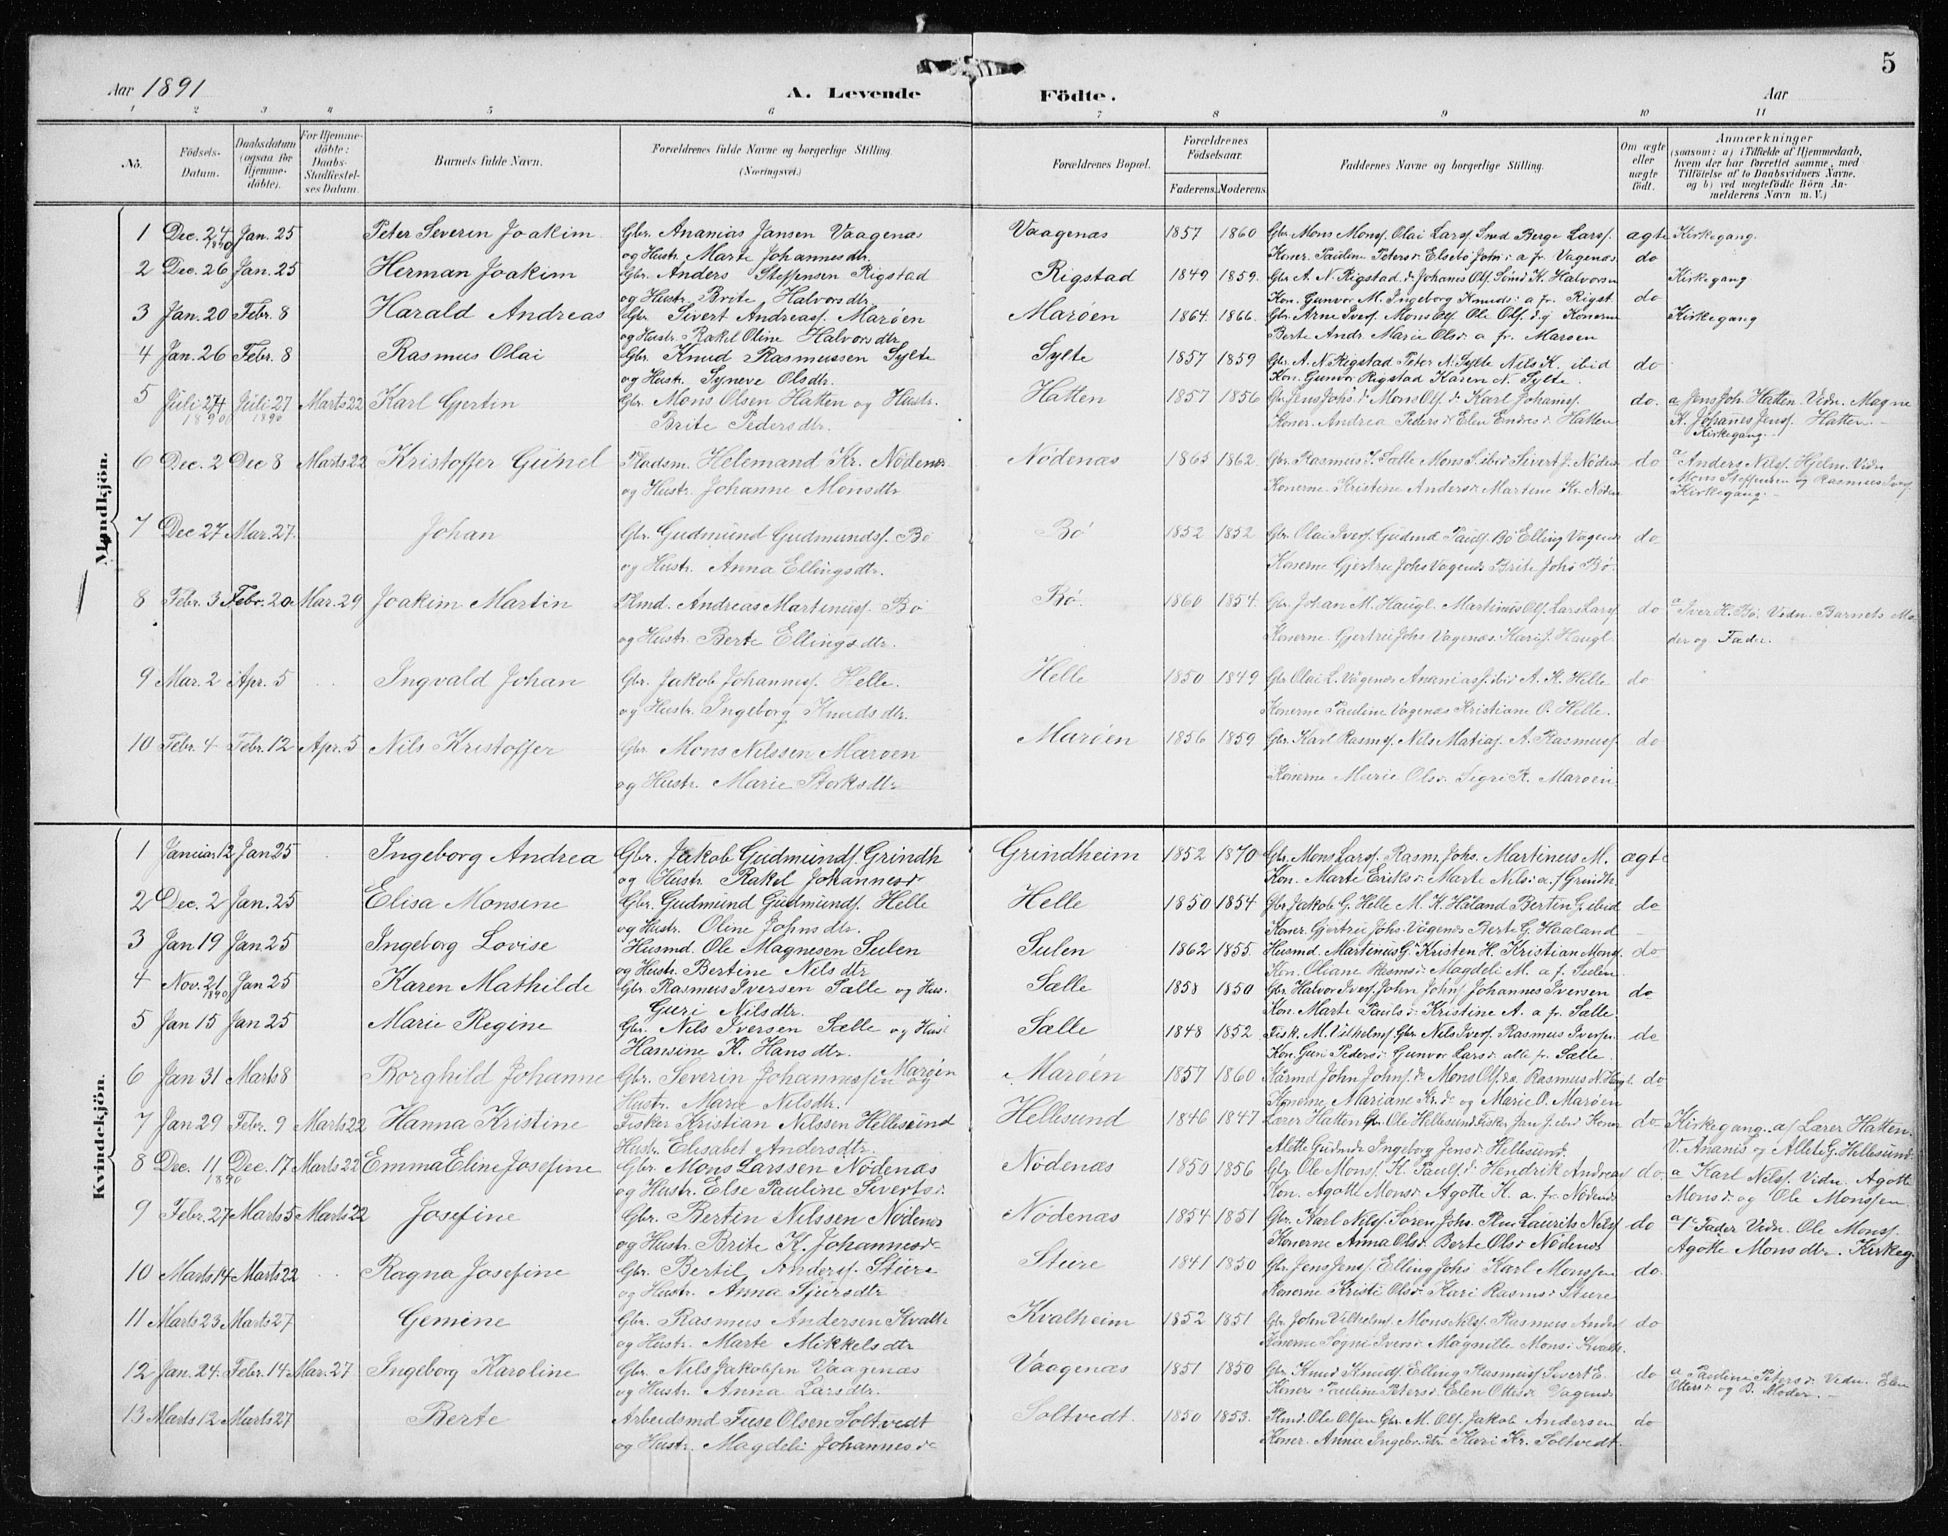 5
Aar 1891 A. Levende Födte. Aar
1 2 3 4 5 6 7 8 9 10 11
No. Födsels-Datum. Daabsdatum (ogsaa for Hjemme-döbte). For Hjemme-döbte: Daabs-Stadfæstel-ses Datum. Barnets fulde Navn. Forældrenes fulde Navne og borgerlige Stilling. (Næringsvei.) Forældrenes Bopæl. Forældrenes Födselsaar. Faderens. Moderens. Faddernes Navne og borgerlige Stilling. Om ægte eller uægte födt. Anmærkninger (saasom: a) i Tilfælde af Hjemmedaab, hvem der har forrettet samme, med Tilföielse af to Daabsvidners Navne, og b) ved uægtefödte Börn An-melderens Navn m. V.)
Mandkjön.
1 Dec. 24 1890 Jan. 25 Peter Severin Joakim Gbr. Ananias Jansen Vaagenæs Vaagenæs 1857 1860 Gbr Mons Monsf. Olai Larsf. Smd Berge Larsf. ægte Kirkegang.
og Hustr. Marte Johannesdtr. Koner. Pauline Petersd Elsebø Johnsd a. fr. Vagenæs
2 Dec. 26 Jan. 25 Herman Joakim Gbr. Anders Steffensen Rigstad Rigstad 1849 1859. Gbr A. N. Rigstad Johanis Olsf. K. Halvorsen do Kirkegang
og Hustr. Brite Halvorsdtr. Kon. Gunvor M. Ingeborg Knudsd a fr. Rigst.
3 Jan. 20 Febr. 8 Harald Andreas Gbr. Sivert Andreasf. Marøen Marøen 1864. 1866. Gbr Arne Iversf. Mons Olsf Ole Olsf. Konerne do Kirkegang
og Hustr Rakel Oline Halvorsdtr Berte Andr. Marie Olsd a fr. Marøen
4 Jan. 26 Febr. 8 Rasmus Olai Gbr. Knud Rasmussen Sylte Sylte 1857 1859 Gbr A. N. Rigstad Peter N. Sylte Nils K. ibid do
og Hustr. Syneve Olsdtr. Kon. Gunvor Rigstad Karen N. Sylte.
5 Juli 24 1890 Juli 27 1890 Marts 22 Karl Gjertin Gbr. Mons Olsen Hatten og Hustr. Hatten 1857 1856 Gbr Jens Johs. Mons Olsf. Karl Johansf. do. a Jens Joh. Hatten. Vidn. Magne
Brite Pedersdtr. Koner. Andrea Pedersd Elen Endresd Hatten K. Johanes Jensf. Hatten.
Kirkegang.
6 Dec. 2 Dec 8 Marts 22 Kristoffer Gunel Pladsm. Helemand Kr. Nødenæs Nødenæs 1865 1862. Gbr. Rasmus I. Sælle Mons S. ibid Sivert J. Nøden do a Anders Nilsf. Hjelm. Vidn
og Hustr. Johanne Monsdtr Konerne Kristine Andersd Martine Kr. Nøden Mons Steffensen og Rasmus Iversf.
Kirkegang.
7 Dec 27 Mar. 27. Johan Gbr. Gudmund Gudmundsf. Bø Bø 1852 1852 Gbr. Olai Iversf. Gudmd Paulsf. Bø Elling Vagenæs do
og Hustr. Anna Ellingsdtr. Konerne Gjertru Johs Vagenæs Brite Johs Bø.
8 Febr. 3 Febr. 20 Mar. 29 Joakim Martin Plmd. Andreas Martinusf. Bø Bø. 1860 1854. Gbr. Johan M. Haugl. Martinus Olsf. Lars Larsf. do a Iver H. Bø. Vidn. Barnets Mo-
og Hustr. Berte Ellingsdtr. Konerne Gjertru Johs Vagenæs. Haugl. der og Fader.
9 Mar. 2 Apr. 5 Ingvald Johan Gbr. Jakob Johannesf. Helle. Helle 1850 1849 Gbr Olai L. Vågenæs Ananiasf. ibid A. K. Helle do
og Hustr. Ingeborg Knudsdtr. Konerne Pauline Vagenæs Kristiane O. Helle.
10 Febr. 4 Febr. 12 Apr. 5 Nils Kristoffer Gbr. Mons Nilssen Marøen Marøen 1856 1859 Gbr. Karl Rasmsf. Nils Matiasf. A. Rasmusf. do
og Hustr. Marie Storksdtr Konerne Marie Olsd. Segri K. Marøen.
Kvindekjön.
1 Januar 12 Jan 25 Ingeborg Andrea Gbr. Jakob Gudmundsf. Grindh Grindheim 1852 1870 Gbr. Mons Larsf. Rasm. Johs. Martinus M. ægte
og Hustr. Rakel Johannesd Kon. Marte Eriksd Marte Nilsd a. f Grindh.
2 Dec. 2 Jan. 25 Elisa Monsine Gbr. Gudmund Gudmundsf. Helle Helle 1850 1854 Gbr Jakob G. Helle M. K. Håland Berten G. ibid do
og Hustr. Oline Johnsdtr. Koner. Gjertru Johs. Vågenæs Berte G. Haaland
3 Jan 19 Jan 25 Ingeborg Lovise Husmd Ole Magnesen Sulen Sulen 1862 1855. Husmd. Martinus G. Kristen H. Kristian Mons do
og Hustr. Bertine Nilsdtr Kon. Oliane Rasmsd Magdeli M. a f. Sulen.
4 Nov. 21 1890 Jan 25 Karen Mathilde Gbr. Rasmus Iversen Sælle og Hus. Sælle 1858 1850 Gbr Halvor Iversf. John Johsf. Johannes Iversen do
Guri Nilsdtr. Kon. Marte Paulsd Kristine A. a fr. Sælle
5 Jan 15 Jan 25 Marie Regine Gbr. Nils Iversen Sælle og Hust Sælle 1848 1852 Fisk. M. Vilhelmsf Gbr Nils Iversf. Rasmus Iversen do
Hansine K. Hansdtr. Kon Guri Pedersd Gunvor Larsd alle fr. Sælle.
6 Jan 31 Marts 8 Borghild Johanne Gbr. Severin Johannessen Marøen og Marøen 1857 1860 John Johnsf. Mons Olsf. Rasmus N. Haugl. do
Hustr. Marie Nilsdtr. Konerne, Mariane Kr. og Marie O. Marøen
7 Jan 29 Febr. 9 Marts 22 Hanna Kristine Fisker Kristian Nilssen Hellesund Hellesund 1846 1847 Lærer Hatten Gbr Ole Hellesund Fisker Jan J. ibid Koner do Kirkegang. a/ Lærer Hatten.
Hustr. Elisabet Andersdtr. Alette Gudmd Ingeborg Jensd Hellesund. V. Ananis og Allete G. Hellesund.
8 Dec. 11 1890 Dec. 17 Marts 22 Emma Eline Josefine Gbr. Mons Larssen Nødenæs Nødenæs 1850 1856 Gbr. Ole Monsf. K. Paulsf. Hendrik Andreas do. a Karl Nilsf. Vidn. Agotte
og Hustr. Else Pauline Sivertsd. Kon. Agotte Monsd Agotte K. a. fr. Nødenæs Monsd og Ole Monssen.
9 Febr. 27 Marts 5 Marts 22 Josefine Gbr. Bertin Nilssen Nødenæs Nødenæs 1854 1851 Gbr. Karl Nilsf. Søren Johs. Laurits Nilsf do a Fader Vidn. Ole Monsf.
og Hustr. Brite K. Johannesd Konerne Anna Olsd Berte Olsd Nødenæs Agotte Monsdtr. Kirkeg.
10 Marts 14 Marts 22 Ragna Josefine Gbr. Bertil Andersf. Sture Sture 1841 1850 Gbr Jens Jensf. Elling Johs Karl Monssen do.
og Hustr. Anna Sjursdtr Konerne Kristi Olsd Kari Rasmsd Sture
11 Marts 23 Marts 27 Gemine Gbr. Rasmus Andersen Kvalh Kvalheim 1852 1851 Gbr John Vilhelmsf. Mons Nilsf. Rasmus Andrs do
og Hustr. Marte Mikkelsdtr Konerne Sogne Iversd Magnille Monsd Kvalh.
12 Jan. 24. Febr. 14 Mar. 27 Ingeborg Karoline Gbr. Nils Jakobsen Vaagenæs Vaagenæs 1851 1850 Gbr. Knud Knudsf. Elling Rasmusf Sivert E. do a Pauline Petersd Vidn. Elen
og Hustr. Anna Larsdtr. Koner Pauline Petersd Elen Ottersd Vagenæs Ottersd og B. Moder.
13 Marts 12 Marts 27 Berte Arbeidsmd Tuse Olsen Soltvedt Soltvedt. 1850 1853. Plmd. Ole Olsen Gbr. M. Olsf. Jakob Andersen do
og Hustr. Magdeli Johannesd Koner. Anna Ingebr.dtr Kari Kr. Soltvedt.